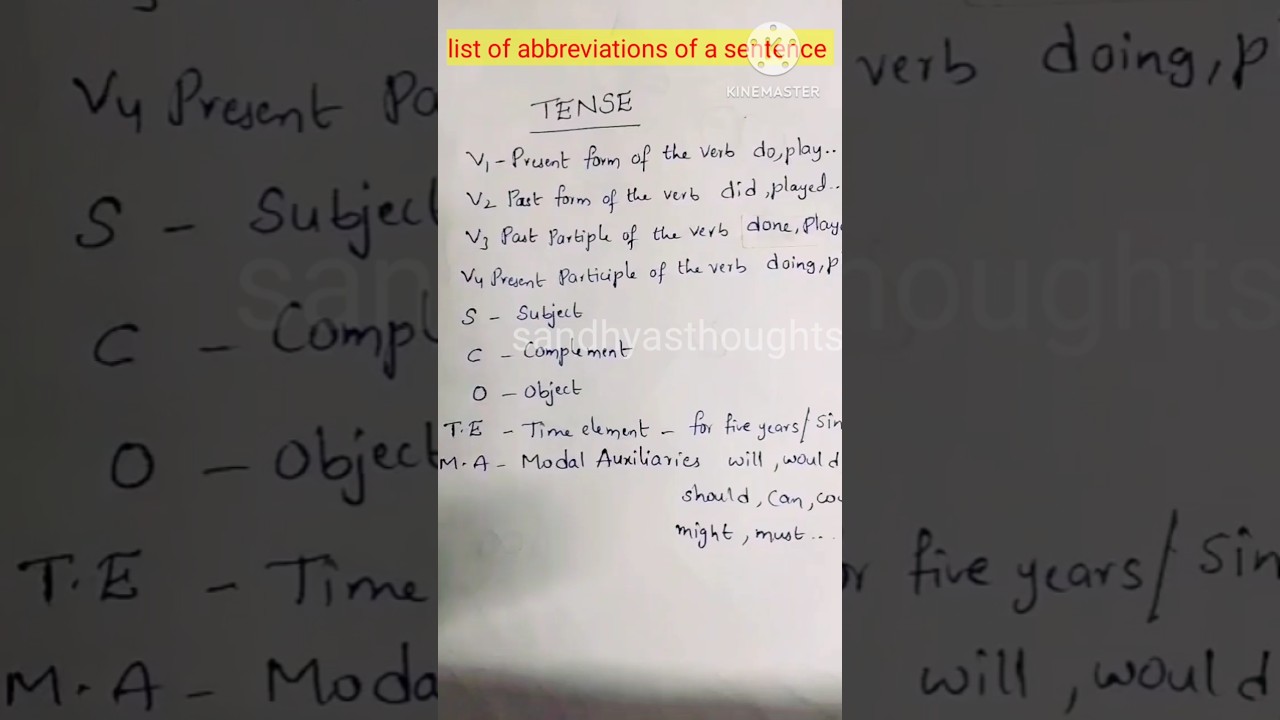 list of abbreviations of a sentence
KINEMASTER
TENSE
V1 - Present form of the verb do, play..
V2 Past form of the verb did, played..
V3 Past Partiple of the verb done, Play
V4 Present Participle of the verb doing, p
S - Subject
sandhyasthoughts
C - Complement
O - Object
T.E - Time element - for five years/ Sin
M.A - Modal Auxiliaries will, would
should, Can, cou
might, must...